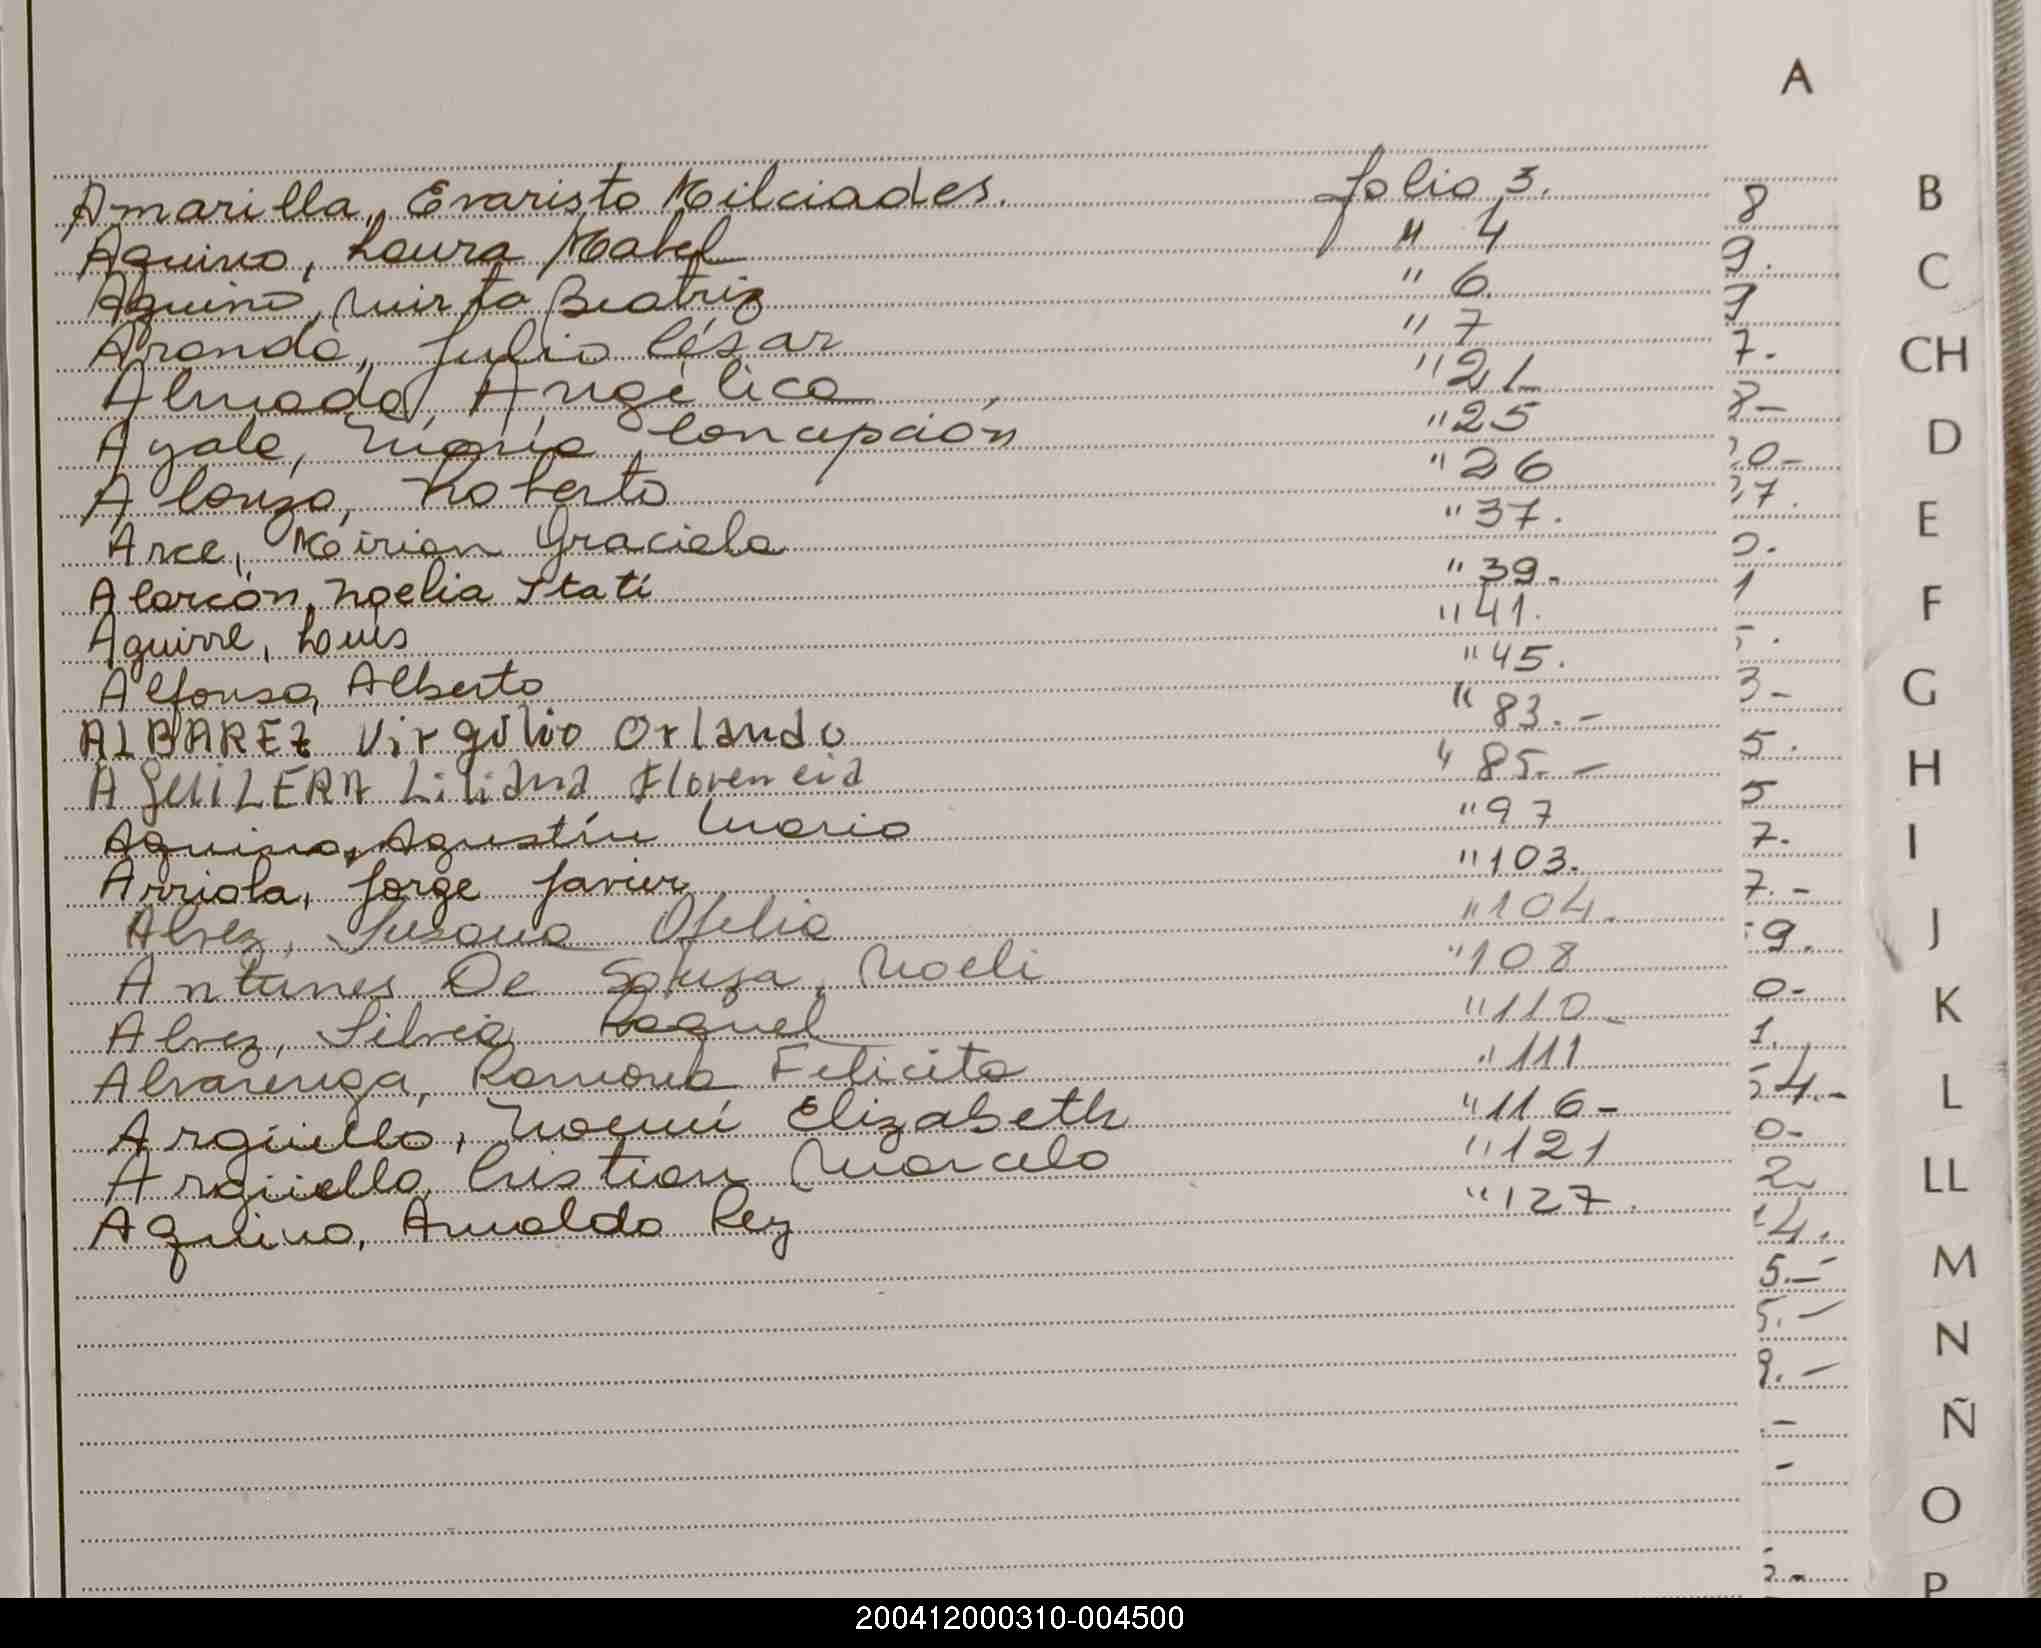 A
Amarilla, Evaristo Milciades. folio 3.
Aquino, Laura Mabel " 4
Aquino, Mirta Beatriz " 6.
Aranda, Julio César " 7
Almada Angélica " 21
Ayala, María Concepción " 25
Alonzo, Roberto " 26
Arce, Mirian Graciela " 37.
Alarcón, Noelia Itatí " 39.
Aguirre, Luis " 41.
Alfonso, Alberto " 45.
ALBAREZ Virgilio Orlando " 83.-
AGUILERA Liliana Florencia " 85.-
Aquino, Agustín Mario " 97
Arriola, Jorge Javier " 103.
Alvez, Susana Ofelia " 104.
Antunes De Souza, Noeli " 108
Alvez, Silvia Raquel " 110-
Alvarenga, Ramona Felicita " 111
Argüello, Noemí Elizabeth " 116-
Argüello, Cristian Marcelo " 121
Aquino, Arnaldo Rey " 127.
8
9.
7.
B
C
CH
D
E
F
G
H
I
J
K
L
LL
M
N
Ñ
O
P
200412000310-004500